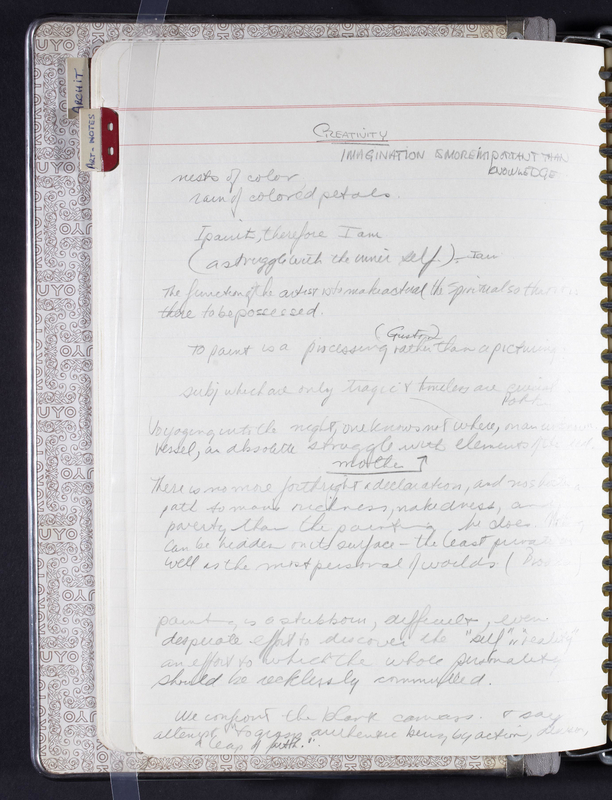 ARCHIT
ART-NOTES
CREATIVITY
IMAGINATION IS MORE IMPORTANT THAN
KNOWLEDGE
nests of color
rain of colored petals.
I paint, therefore I am
(a struggle with the inner self.) - Ian
The function of the artist is to make actual the spiritual so that it is
there to be possessed.
(Guston)
to paint is a processing rather than a picturing
subj which are only tragic & timeless are
Voyaging into the night, one knows not where, on an unknown
vessel, an absolute struggle with elements of the real.
Mother ↑
There is no more forthright a declaration, and no shorter a
path to man's richness, nakedness, and
poverty than the painting he does. Nothing
can be hidden on its surface - the least private as
well as the most personal of worlds (
painting is a stubborn, difficult, even
desperate effort to discover the "self" "reality"
an effort to which the whole personality
should be recklessly committed.
We confront the blank canvas. & say
attempt "to grasp authentic being by action, decision,
a leap of faith."